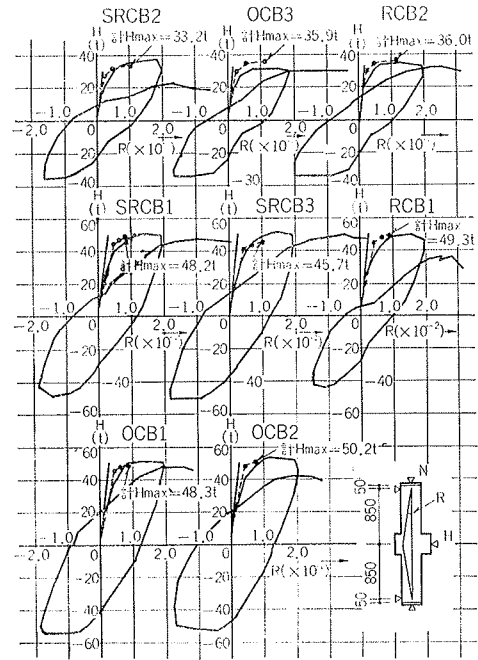 SRCB2 OCB3 RCB2
H (t) H (t) H (t)
計Hmax=33.2t 計Hmax=35.9t 計Hmax=36.0t
40 40 40
20 20 20
-1.0 -1.0 -1.0
-2.0 0 1.0 2.0 -2.0 0 1.0 2.0 -2.0 0 1.0 2.0
R(×10 R(×10 R(×10
-20 -20 -20
-40 30 -40
H (t) SRCB1 H (t) SRCB3 H (t) RCB1
60 60 60
計Hmax =49.3t
40 40 40
計Hmax=48.2t 計Hmax=45.7t
20 20 20
-1.0 -1.0 -1.0
-2.0 0 1.0 2.0 -2.0 0 1.0 2.0 -2.0 0 1.0 2.0
R(×10 R(×10 R(×10⁻²)
-20 -20 -20
-40 -40 -40
-60 -60 -60
H (t) OCB1 H (t) OCB2
60 60
計Hmax=50.2t
40 40
計Hmax=48.3t
20 20
-2.0 -1.0 0 1.0 2.0 -2.0 -1.0 0 1.0 2.0
R(×10
-20 -20
-40 -40
-60 -60
N
50
R
850
H
850
50